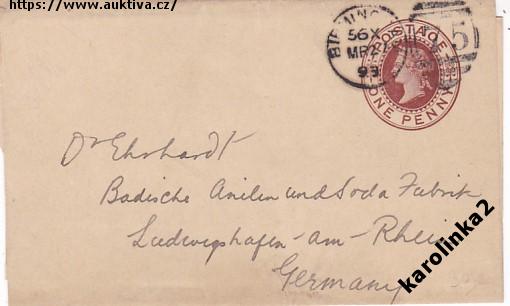 https://www.auktiva.cz/
BIRMING
56X
MR 2
93
75
POSTAGE
ONE PENNY
Dr Ehrhardt
Badische Anilin und Soda Fabrik
Ludwigshafen-am-Rhein
Germany
karolinka2